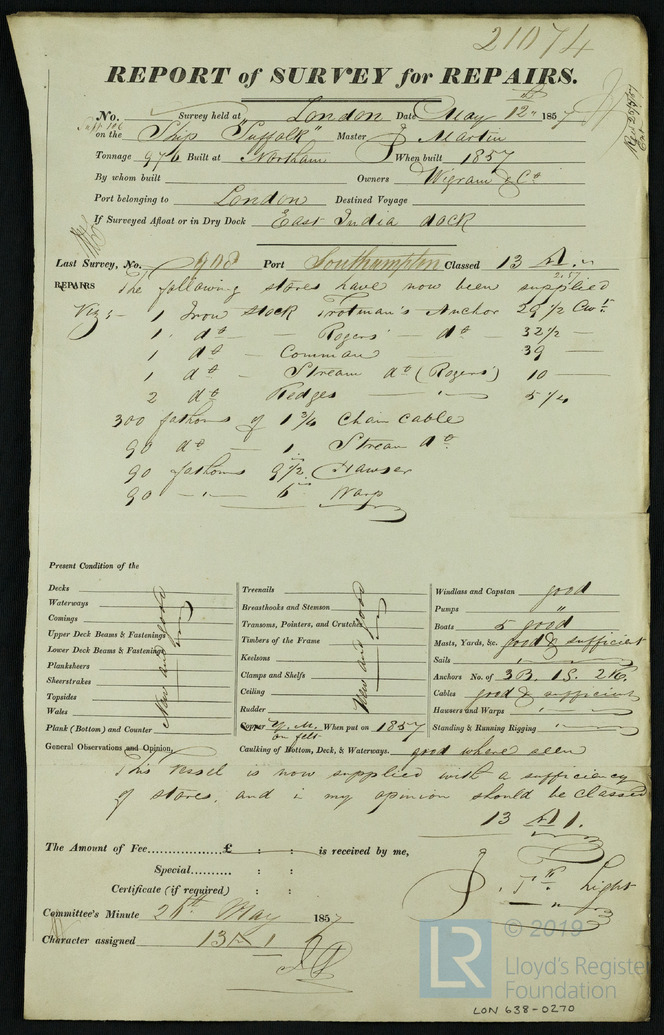 21074
REPORT of SURVEY for REPAIRS.
No. Survey held at London Date May 12th 1857
on the Ship "Suffolk" Master J Martin
Tonnage 976 Built at Northam When built 1857
By whom built Owners Wigram & Co
Port belonging to London Destined Voyage
If Surveyed Afloat or in Dry Dock East India dock
Last Survey, No. 908 Port Southampton Classed 13 A
2.57
REPAIRS The following stores have now been supplied
Viz:- 1 Iron Stock Trotman's Anchor 29 1/2 Cwts
1 do - Rogers' - do - 32 1/2 -
1 do - Common 39 -
1 do - Stream do (Rogers') 10 -
2 do Kedges 5 1/4
300 fathoms of 1 3/4 Chain Cable
90 do - 1 Stream do
90 fathoms 9 1/2 in Hawser
90 - " - 6 in Warp
Present Condition of the
Decks
Waterways
Comings
Upper Deck Beams & Fastenings
Lower Deck Beams & Fastenings
Planksheers
Sheerstrakes
Topsides
Wales
Plank (Bottom) and Counter
New and good
Treenails
Breasthooks and Stemson
Transoms, Pointers, and Crutches
Timbers of the Frame
Keelsons
Clamps and Shelfs
Ceiling
Rudder
New and good
Copper Y.M. When put on 1857
on felt
Caulking of Bottom, Deck, & Waterways. good where seen
Windlass and Capstan good
Pumps "
Boats 5 good
Masts, Yards, &c. good & sufficient
Sails "
Anchors No. of 3B. 1S. 2K.
Cables good & sufficient
Hawsers and Warps "
Standing & Running Rigging "
General Observations and Opinion,
This Vessel is now supplied with a sufficiency
of stores, and in my opinion should be classed
13 A1.
The Amount of Fee...............£ : : is received by me,
Special.......... : :
Certificate (if required) : :
J. Tn. Light
Committee's Minute 26th May 1857
Character assigned 13 A 1
© 2019
LR
Lloyd's Register
Foundation
LON 638-0270